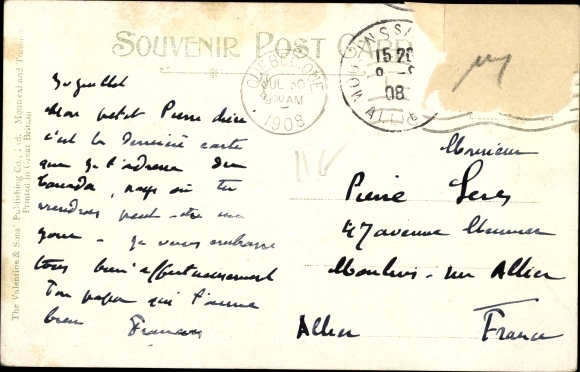 SOUVENIR POST CARD
The Valentine & Sons' Publishing Co., Ltd., Montreal and Toronto
Printed in Great Britain
QUEBEC
JUL 30
AM
1908
MOULINS S/
15 20
08
ALLIER
30 juillet
Mon petit Pierre
c'est la dernière carte
que je t'adresse du
Canada, pays où tu
viendras peut-être un
jour - je vous embrasse
tous bien affectueusement
Ton papa qui t'aime
bien
Monsieur
Pierre
47 avenue
Moulins-sur Allier
Allier France